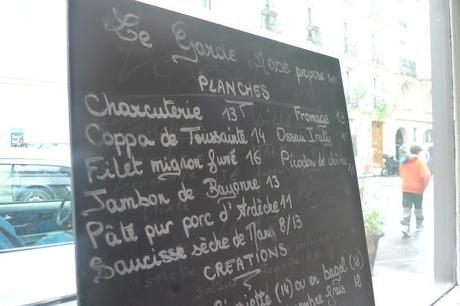 Le Garde Robe propose
PLANCHES
Charcuterie 13 Fromage 13
Coppa de Toussainte 14 Ossau Iraty
Filet mignon fumé 16 Picodon de
Jambon de Bayonne 13
Pâté pur porc d'Ardèche 11
Saucisse sèche de 8/13
CREATIONS
(14) ou en bagel (18)